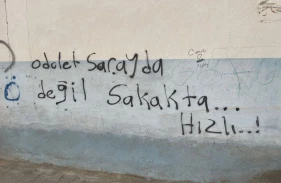 adalet Sarayda
değil Sakakta...
Hızlı..!